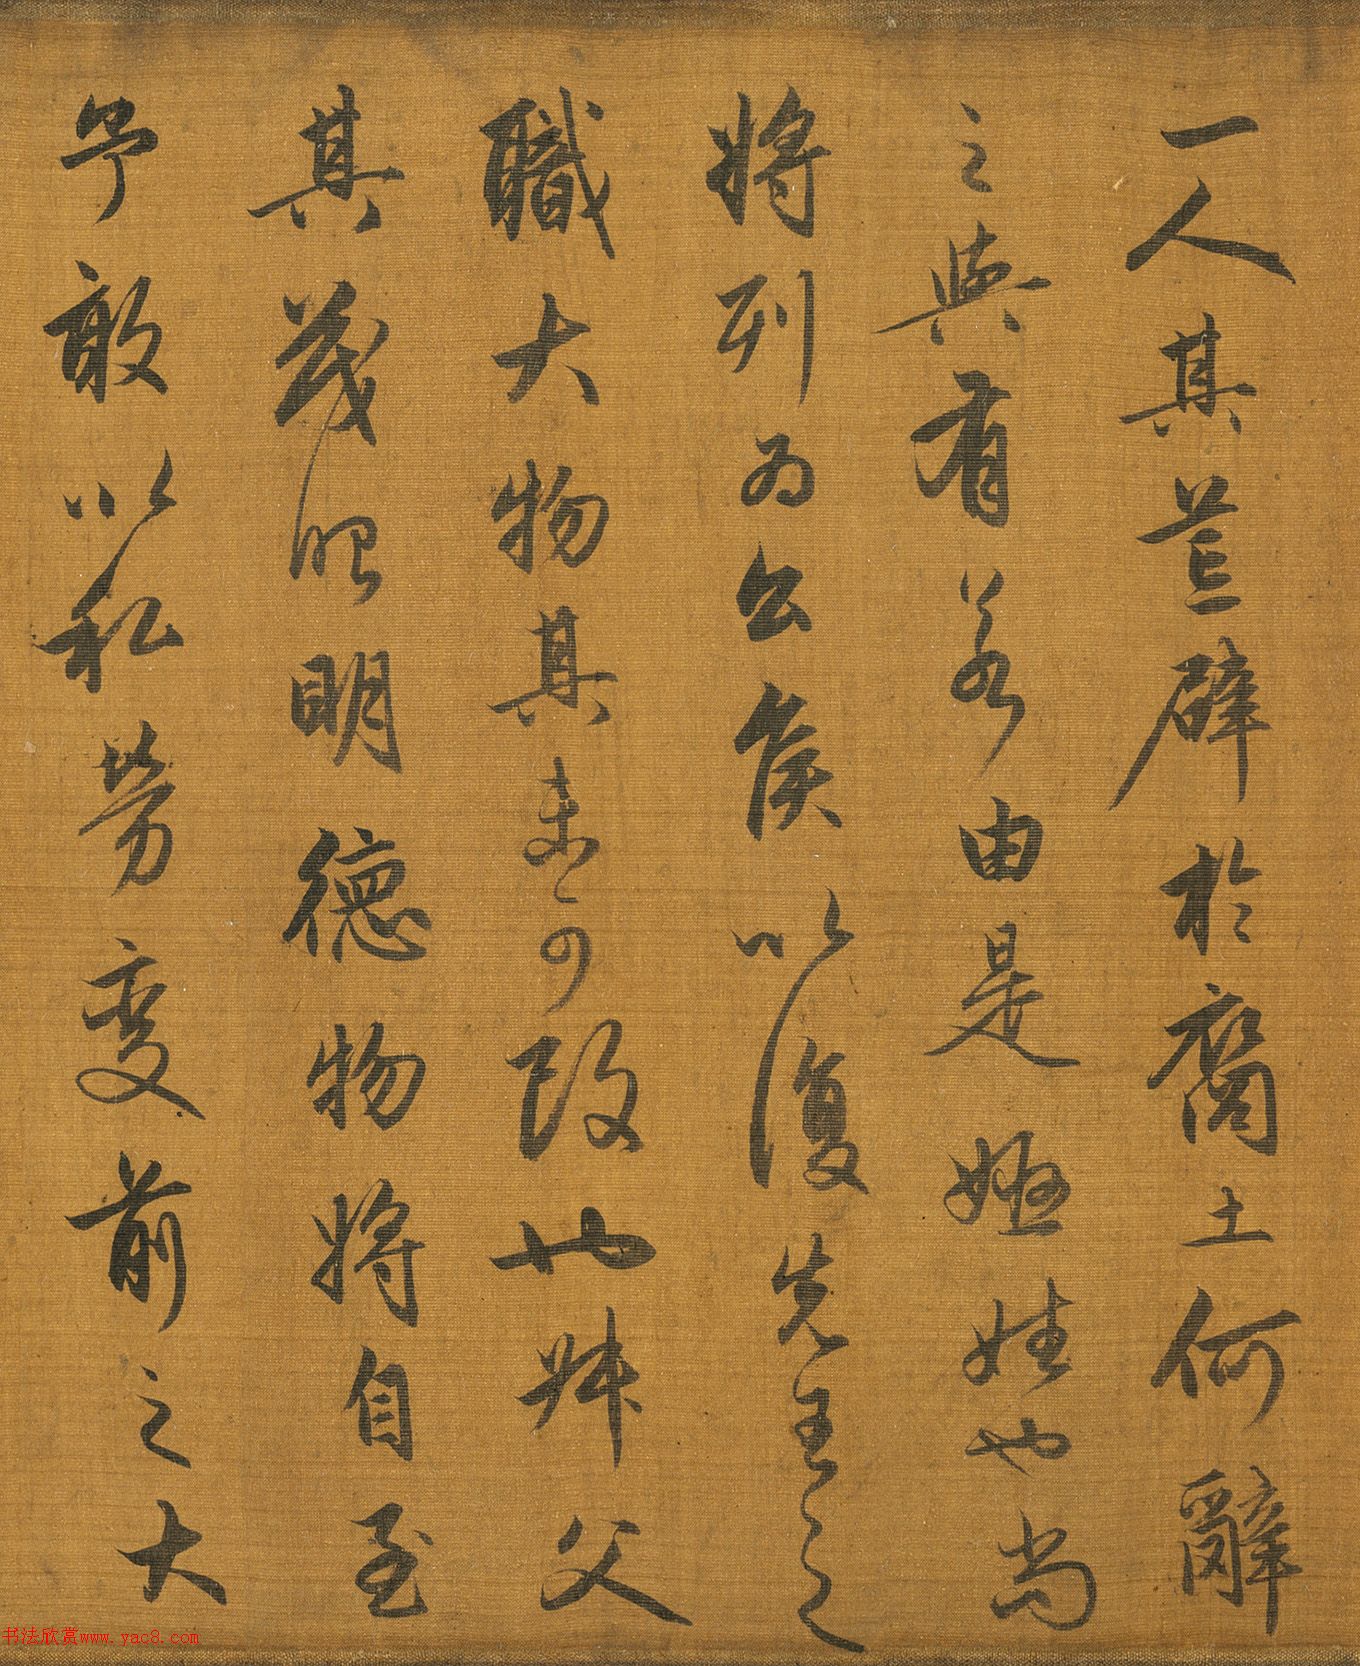 一人其辟於裔土何辭
之與有若由是姬姓也尚
將列为公侯以復先王之
職大物其未可改也叔父
其茂昭明德物將自至
予敢以私勞变前之大
书法欣赏www.yac8.com